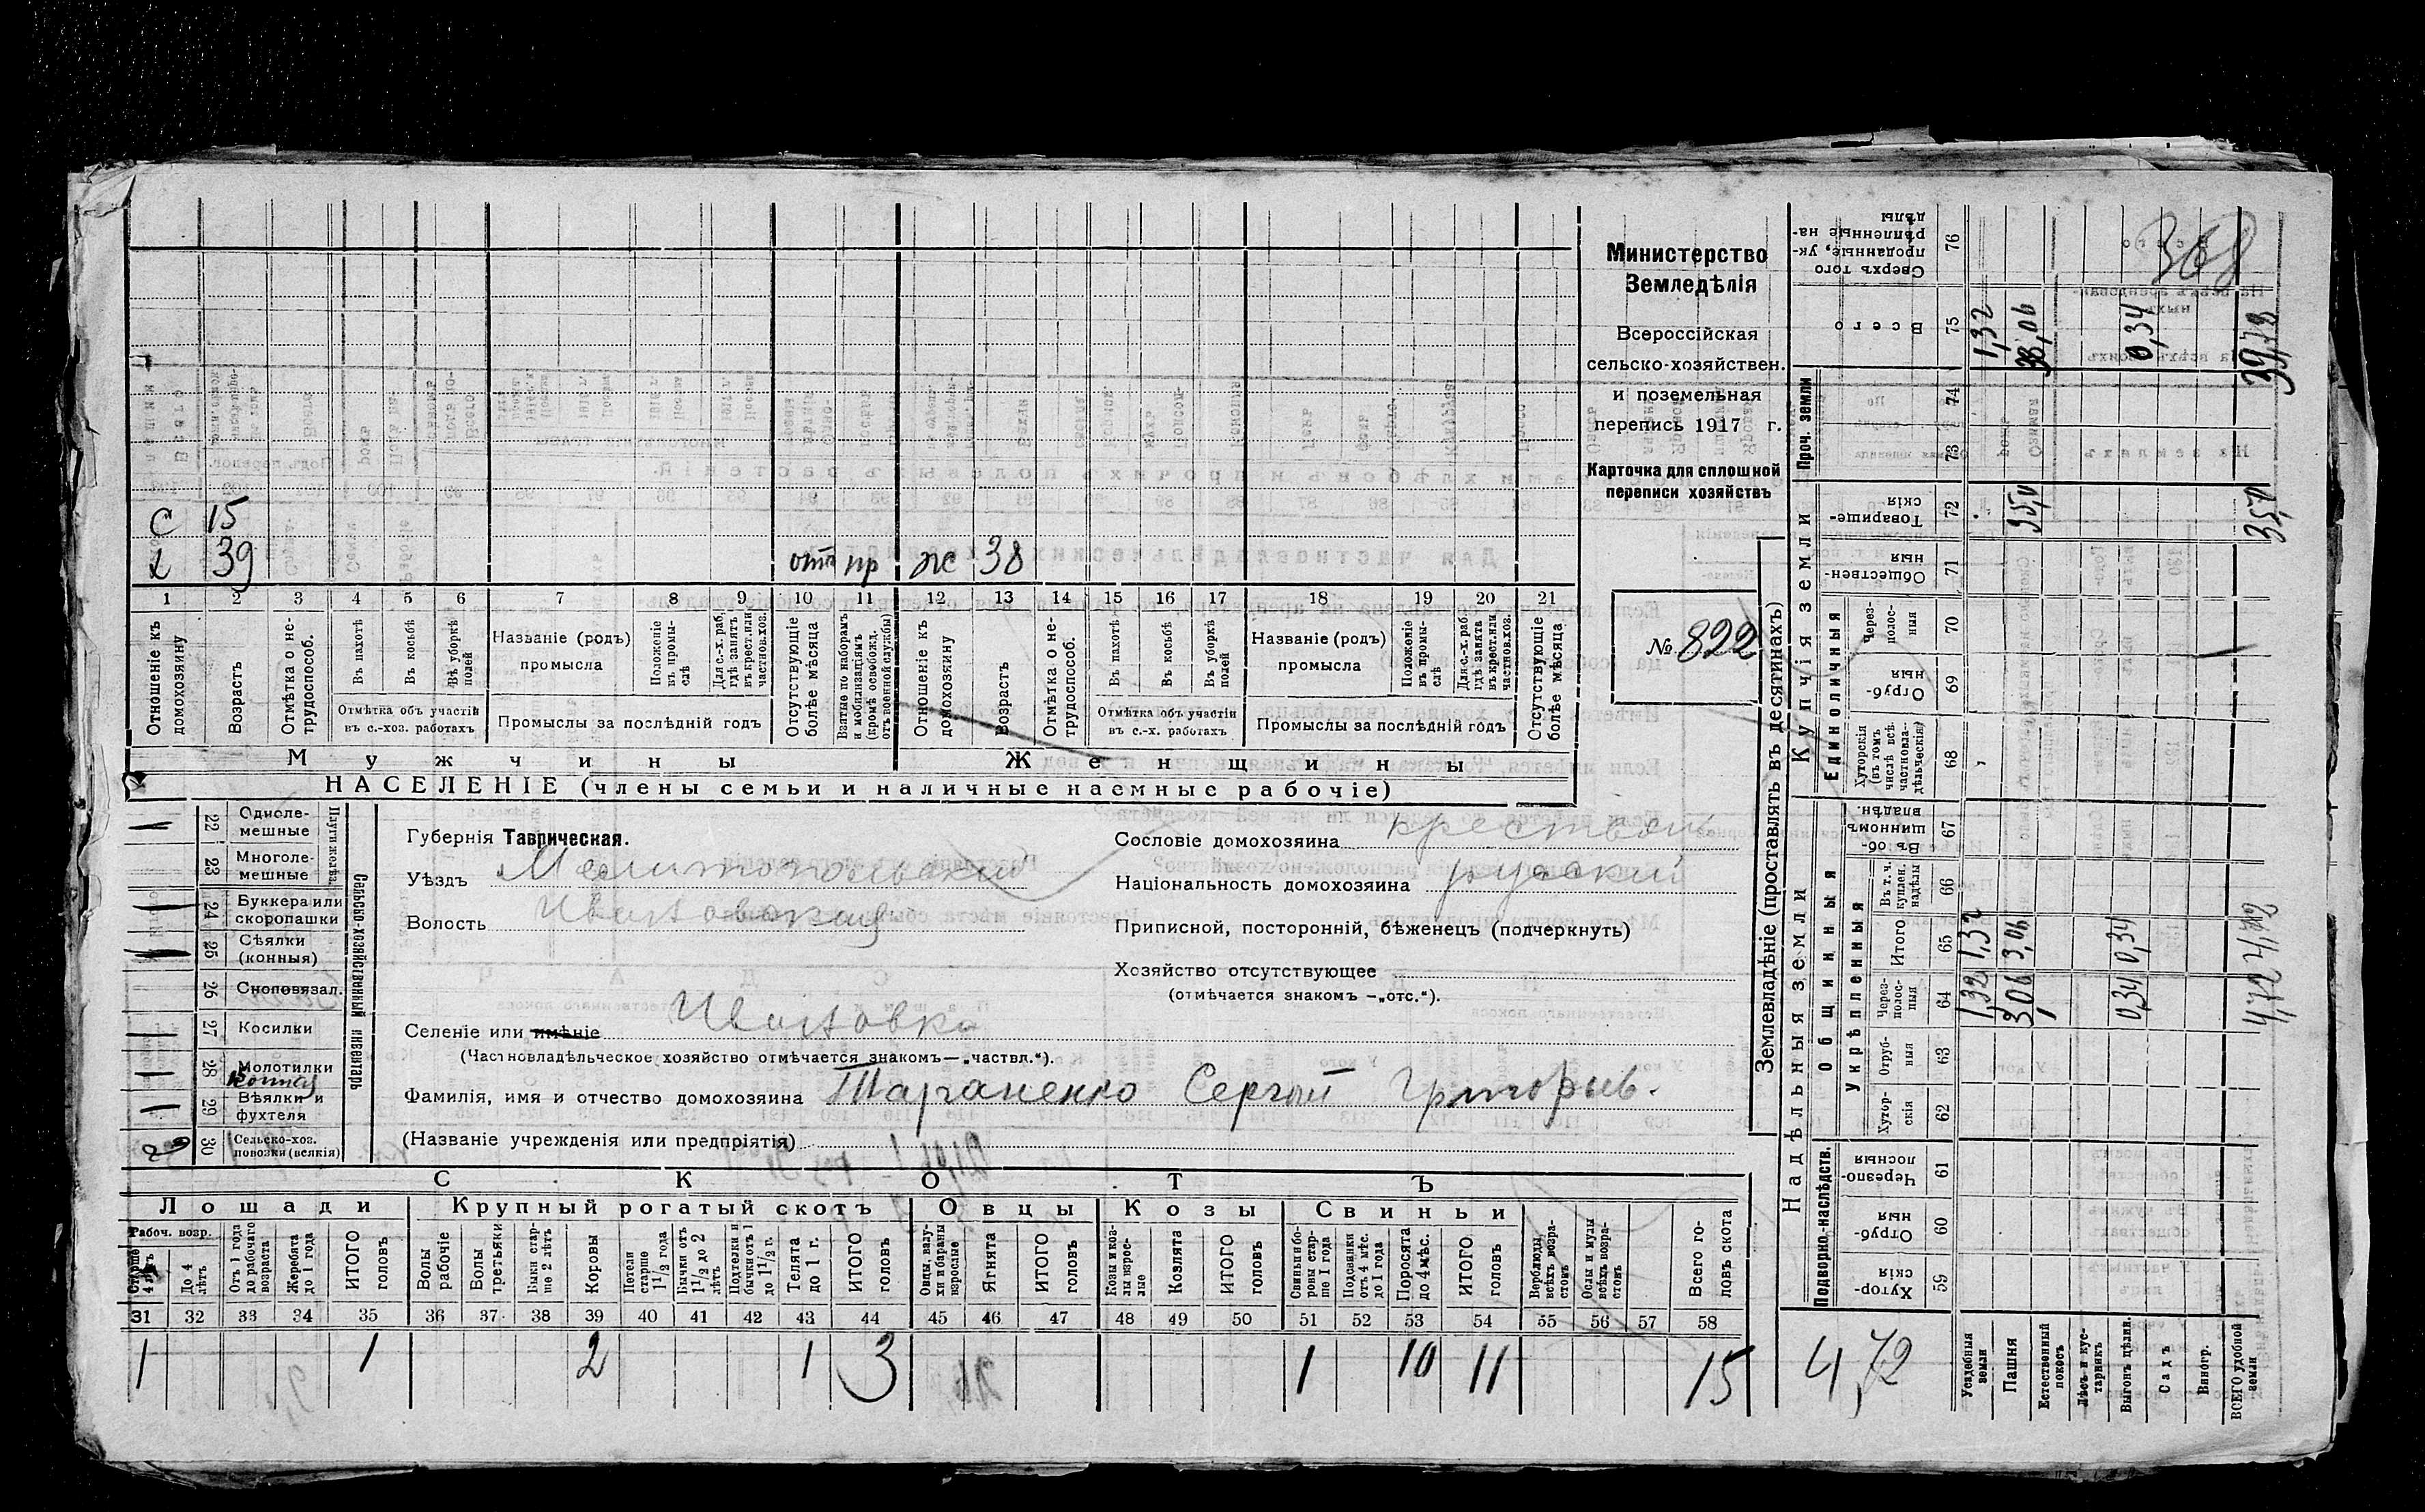 Министерство
Земледѣлія
Всероссійская
сельско-хозяйствен.
и поземельная
перепись 1917 г.
Карточка для сплошной
переписи хозяйствъ
№ 822
368
С 15
39 отп пр ж 38
1 2 3 4 5 6 7 8 9 10 11 12 13 14 15 16 17 18 19 20 21
Отношеніе къ домохозяину
Возрастъ
Отмѣтка о не-трудоспособ.
Въ пахотѣ
Въ косьбѣ
Въ уборкѣ полей
Отмѣтка объ участіи въ с.-хоз. работахъ
Названіе (родъ) промысла
Положеніе въ промы-слѣ
Для с.-х. раб. гдѣ занятъ въ крест. или частнов. хоз.
Промыслы за послѣдній годъ
Отсутствующіе болѣе мѣсяца
Взятые по наборамъ и мобилизаціямъ (кромѣ освобожд. отъ военной службы)
Отношеніе къ домохозяину
Возрастъ
Отмѣтка о не-трудоспособ.
Въ пахотѣ
Въ косьбѣ
Въ уборкѣ полей
Отмѣтка объ участіи въ с.-х. работахъ
Названіе (родъ) промысла
Положеніе въ промы-слѣ
Для с.-х. раб. гдѣ занята въ крест. или частнов. хоз.
Промыслы за послѣдній годъ
Отсутствующіе болѣе мѣсяца
Мужчины Женщины
НАСЕЛЕНІЕ (члены семьи и наличные наемные рабочіе)
22 Одноле-мешные
23 Многоле-мешные
24 Буккера или скоропашки
25 Сѣялки (конныя)
26 Сноповязал.
27 Косилки
28 Молотилки
29 Вѣялки и фухтеля
30 Сельско-хоз. повозки (всякія)
Плуги желѣз.
Сельско-хозяйственный инвентарь
Губернія Таврическая.
Уѣздъ Мелитопольскій
Волость Ивановская
Селеніе или имѣніе Ивановка
(Частновладѣльческое хозяйство отмѣчается знакомъ—„частвл.“).
Фамилія, имя и отчество домохозяина Тараненко Сергѣй Григорьев.
(Названіе учрежденія или предпріятія)
Сословіе домохозяина крестьян
Національность домохозяина русскій
Приписной, посторонній, бѣженецъ (подчеркнуть)
Хозяйство отсутствующее
(отмѣчается знакомъ —„отс.“).
СКОТЪ
Лошади Крупный рогатый скотъ Овцы Козы Свиньи
Рабоч. возр.
Старше 4 лѣтъ
До 4 лѣтъ
Отъ 1 года до рабочаго возраста
Жеребята до 1 года
ИТОГО головъ
Волы рабочіе
Волы третьяки
Быки стар-ше 2 лѣтъ
Коровы
Нетели старше 1 1/2 года
Бычки отъ 1 1/2 до 2 лѣтъ
Подтелки и бычки отъ 1 до 1 1/2 г.
Телята до 1 г.
ИТОГО головъ
Овцы, валу-хи и бараны взрослые
Ягнята
ИТОГО головъ
Козы и коз-лы взрос-лые
Козлята
ИТОГО головъ
Свиньи и бо-ровы стар-ше 1 года
Подсвинки отъ 4 мѣс. до 1 года
Поросята до 4 мѣс.
ИТОГО головъ
Верблюды всѣхъ возра-стовъ
Ослы и мулы всѣхъ возра-стовъ
Всего го-ловъ скота
31 32 33 34 35 36 37 38 39 40 41 42 43 44 45 46 47 48 49 50 51 52 53 54 55 56 57 58
1 1 2 1 3 1 10 11 15
Землевладѣніе (проставлять въ десятинахъ)
Надѣльныя земли Купчія земли Проч. земли
Подворно-наслѣдств. Общинныя Единоличныя
Укрѣпленныя
Хутор-скія 59
Отруб-ныя 60
Черезпо-лосныя 61
Хутор-скія 62
Отруб-ныя 63
Черезполос-ныя 64
Итого 65
Въ т. ч. куплен. надѣлы 66
Въ об-щинномъ владѣн. 67
Хуторскія (въ томъ числѣ всѣ частновла-дѣльческія) 68
Отруб-ныя 69
Через-полос-ныя 70
Обществен-ныя 71
Товарище-скія 72
73
74
Всего 75
Сверхъ того проданные, ук-рѣпленные на-дѣлы 76
4,72
Усадебныя земли 1,32 1,32 1,32
Пашня 3,06 3,06 35,0 38,06
Естественный покосъ
Лѣсъ и кус-тарникъ
Выгонъ цѣлин. 0,34 0,34 0,34
Садъ
Виногр.
ВСЕГО удобной земли 4,72 4,72 35,0 39,72